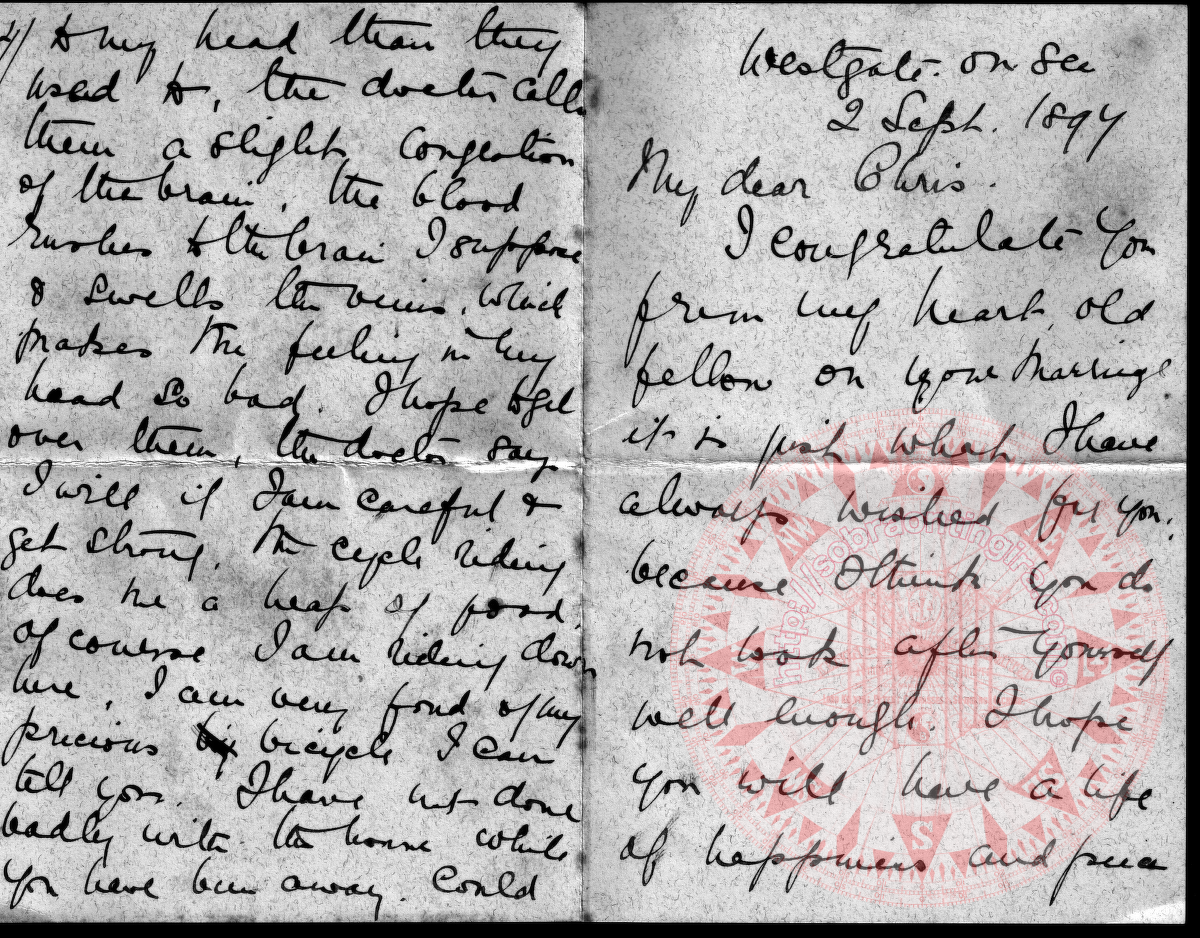 Westgate. on Sea
2 Sept. 1897
My dear Chris.
I congratulate you
from my heart, old
fellow on your Marriage
it is just what I have
always wished for you.
because I think you do
not look after yourself
well enough. I hope
you will have a life
of happiness and peace
4/ to my head than they
used to, the doctor calls
them a slight congestion
of the brain, the blood
rushes to the brain I suppose
& swells the veins, which
makes the feeling in my
head so bad. I hope to get
over them, the doctor says
I will if I am careful &
get strong. The cycle riding
does me a heap of good,
of course I am riding down
here, I am very fond of my
precious bicycle I can
tell you. I have not done
badly with the house while
you have been away. Could
http://sobraonangir
S